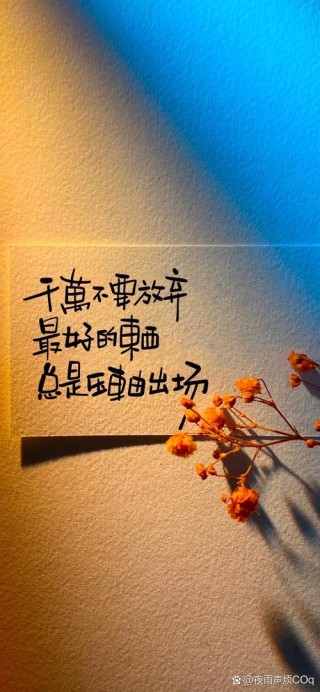 千萬不要放弃
最好的東西
总是压軸出场
@夜雨声烦COq